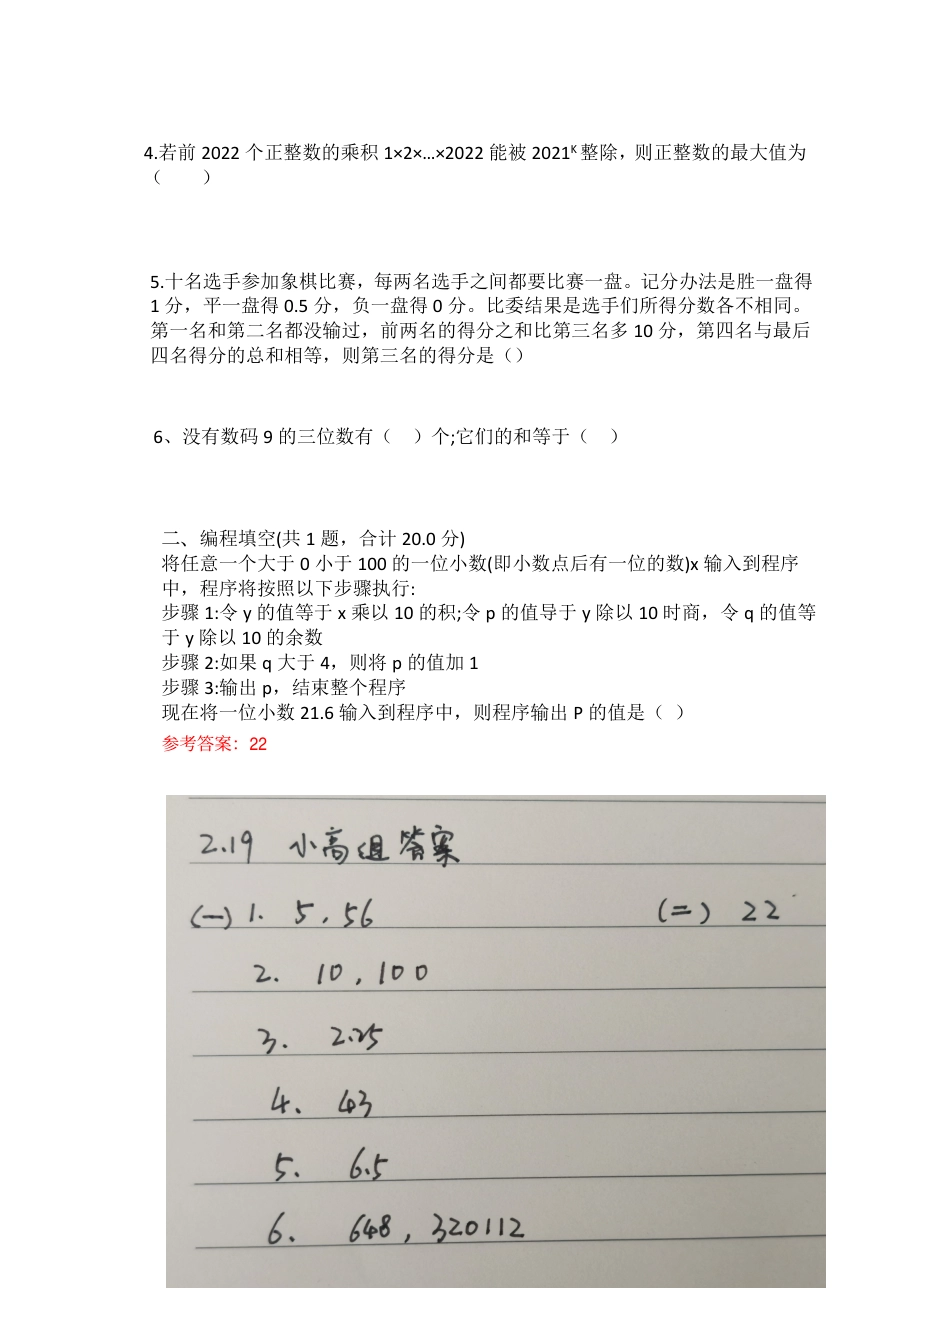 4.若前 2022 个正整数的乘积 1×2×…×2022 能被 2021ᴷ 整除，则正整数的最大值为
（　　）
5.十名选手参加象棋比赛，每两名选手之间都要比赛一盘。记分办法是胜一盘得
1 分，平一盘得 0.5 分，负一盘得 0 分。比委结果是选手们所得分数各不相同。
第一名和第二名都没输过，前两名的得分之和比第三名多 10 分，第四名与最后
四名得分的总和相等，则第三名的得分是（）
6、没有数码 9 的三位数有（　）个;它们的和等于（　）
二、编程填空(共 1 题，合计 20.0 分)
将任意一个大于 0 小于 100 的一位小数(即小数点后有一位的数)x 输入到程序
中，程序将按照以下步骤执行:
步骤 1:令 y 的值等于 x 乘以 10 的积;令 p 的值导于 y 除以 10 时商，令 q 的值等
于 y 除以 10 的余数
步骤 2:如果 q 大于 4，则将 p 的值加 1
步骤 3:输出 p，结束整个程序
现在将一位小数 21.6 输入到程序中，则程序输出 P 的值是（ ）
参考答案：22
2.19 小高组答案
(一) 1. 5, 56 (二) 22
2. 10, 100
3. 2.25
4. 43
5. 6.5
6. 648, 320112